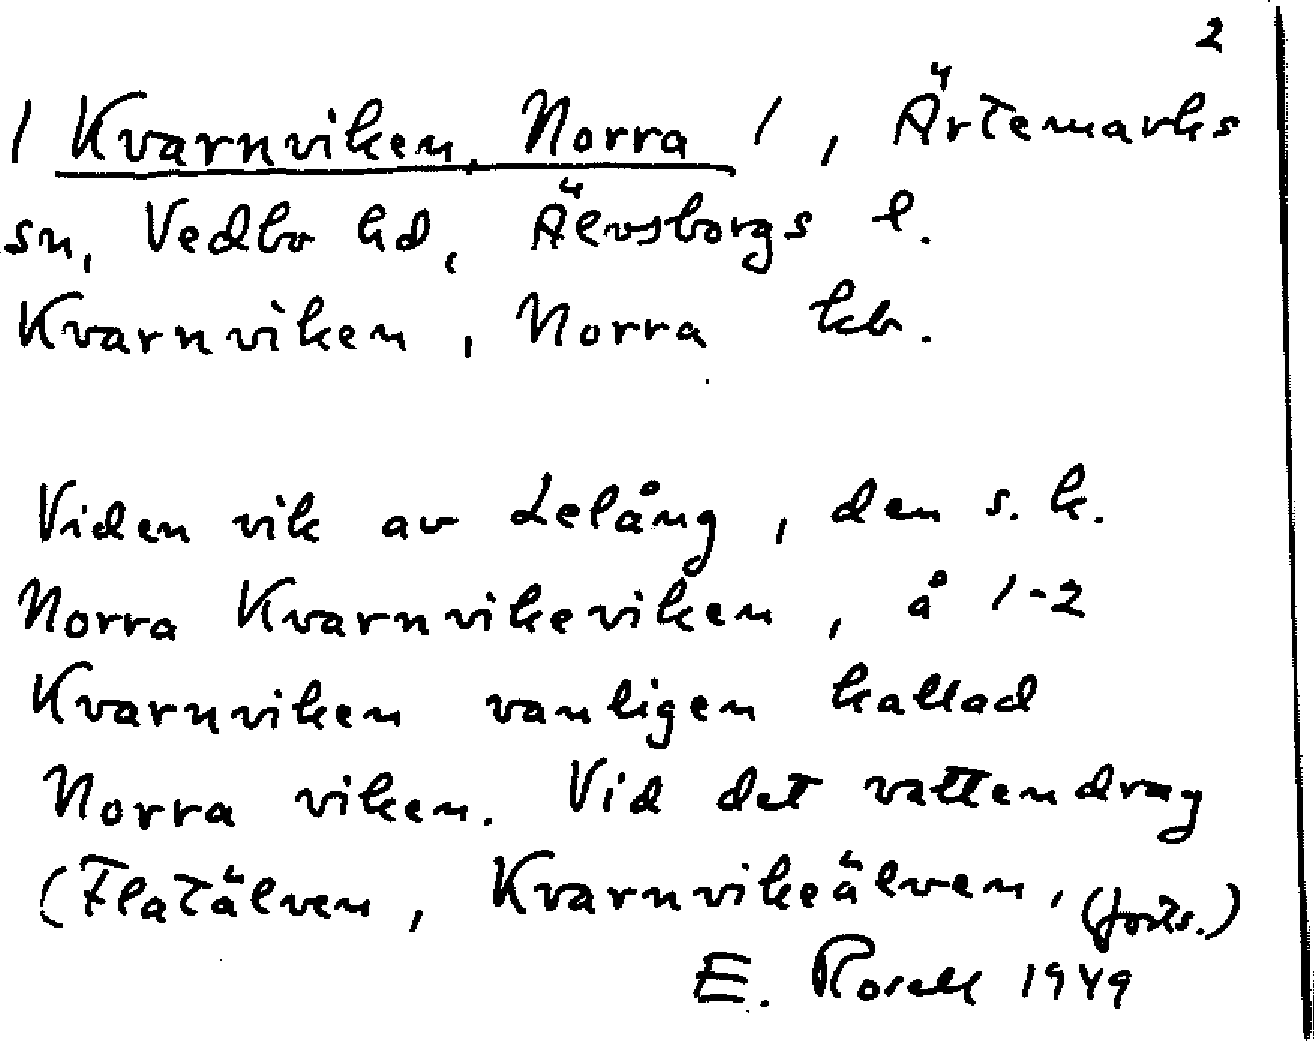 2
/ Kvarnviken, Norra /, Ärtemarks
sn, Vedbo hd, Älvsborgs l.
Kvarnviken, Norra kb.
Viden vik av Lelång, den s.k.
Norra Kvarnvikeviken, å 1-2
Kvarnviken vanligen kallad
Norra viken. Vid det vattendrag
(Flatälven, Kvarnvikeälven, (forts.)
E. Rosell 1949